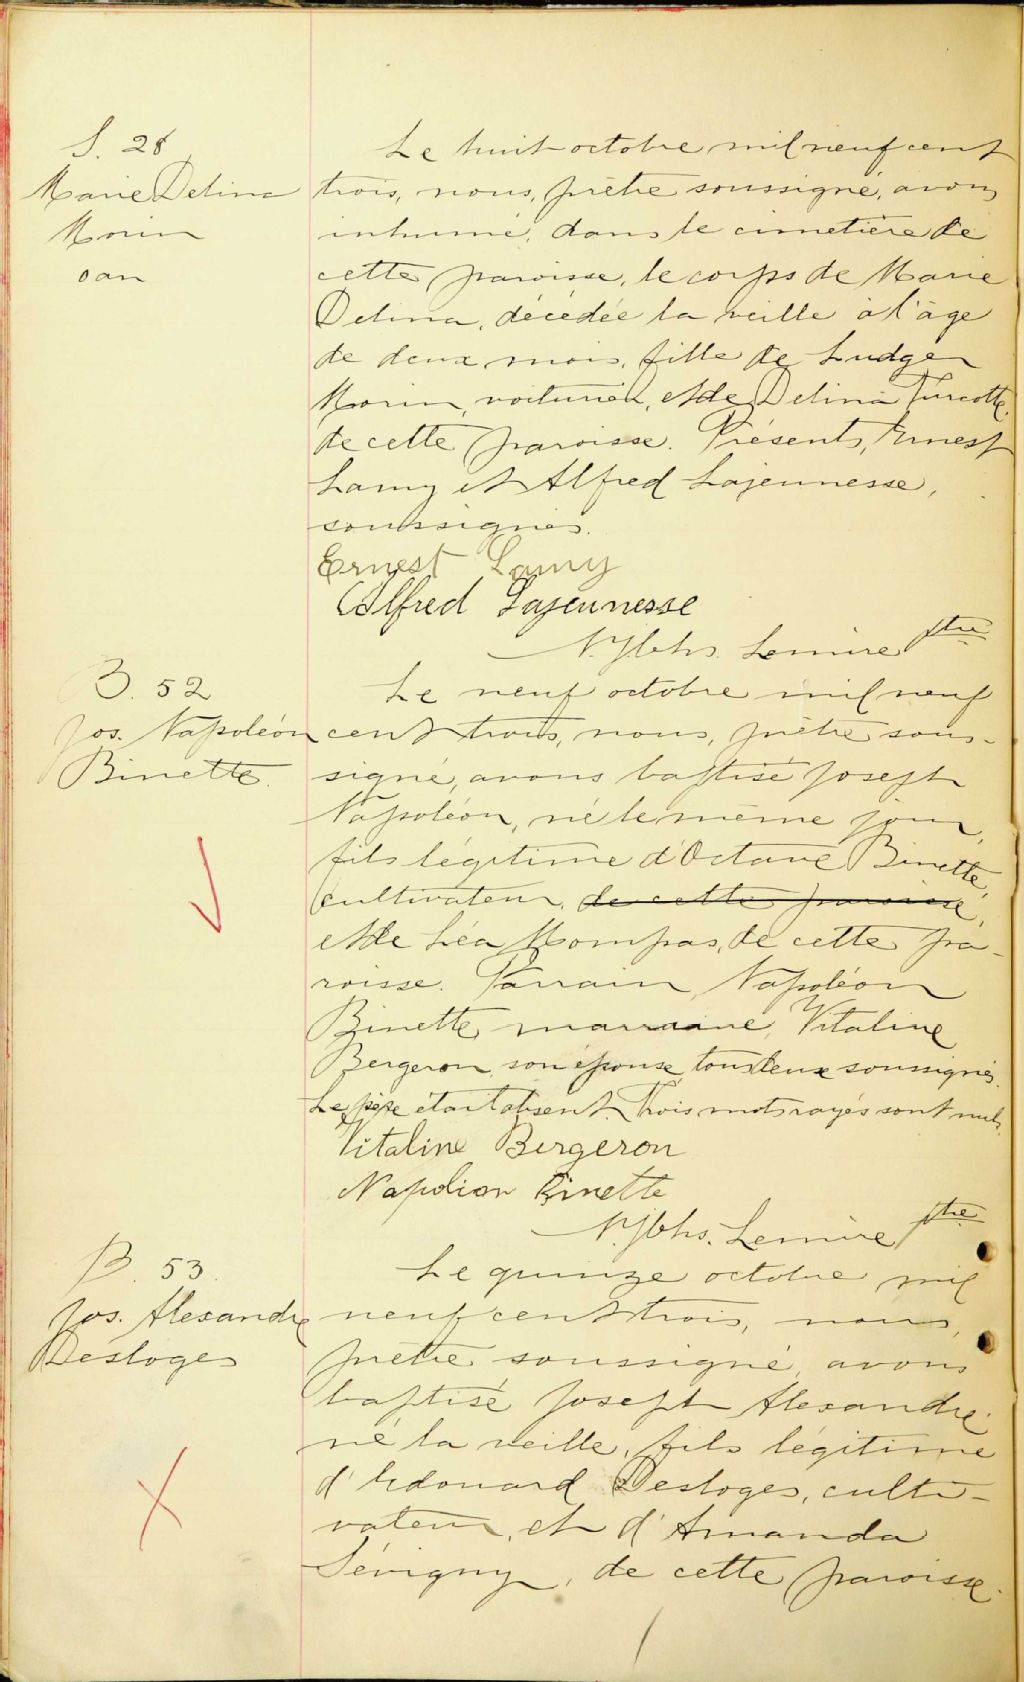 S. 28
Marie Delina
Morin
0 an
Le huit octobre mil neuf cent
trois, nous, prêtre soussigné, avons
inhumé, dans le cimetière de
cette paroisse, le corps de Marie
Delina, décédée la veille à l'âge
de deux mois, fille de Ludger
Morin, voiturier, et de Delina Turcotte,
de cette paroisse. Présents, Ernest
Lamy et Alfred Lajeunesse,
soussignés.
Ernest Lamy
Alfred Lajeunesse
Lemire ptre
B. 52
Jos. Napoléon
Binette.
Le neuf octobre mil neuf
cent trois, nous, prêtre sous-
signé, avons baptisé Joseph
Napoléon, né le même jour,
fils légitime d'Octave Binette,
cultivateur, de cette paroisse,
et de Léa Mompas, de cette pa-
roisse. Parrain, Napoléon
Binette, marraine, Vitaline
Bergeron, son épouse, tous deux soussignés.
Le père était absent. Trois mots rayés sont nuls.
Vitaline Bergeron
Napoleon Binette
Lemire ptre
B. 53.
Jos. Alexandre
Desloges
Le quinze octobre mil
neuf cent trois, nous,
prêtre soussigné, avons
baptisé Joseph Alexandre,
né la veille, fils légitime
d'Edouard Desloges, culti-
vateur, et d'Amanda
Sévigny, de cette paroisse.